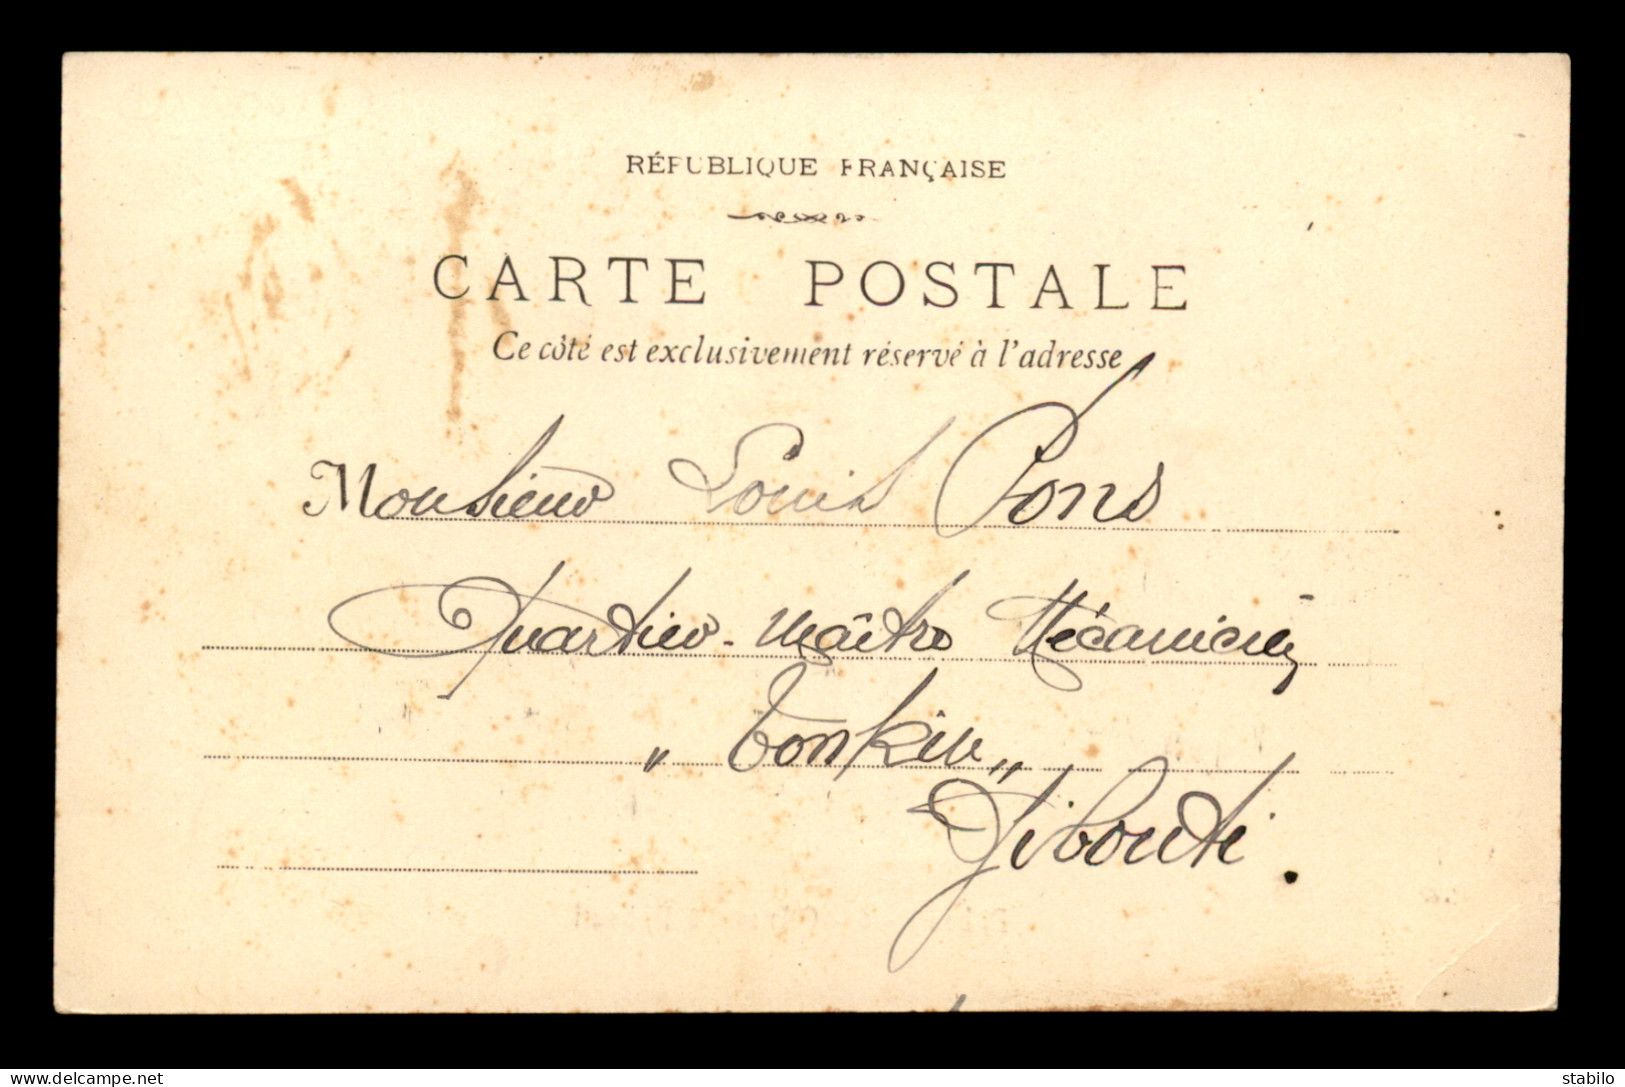 RÉPUBLIQUE FRANÇAISE
CARTE POSTALE
Ce côté est exclusivement réservé à l'adresse
Monsieur Louis Pons
Quartier-Maître Mécanicien
„ Tonkin „
Djibouti.
delcampe.net
stabilo